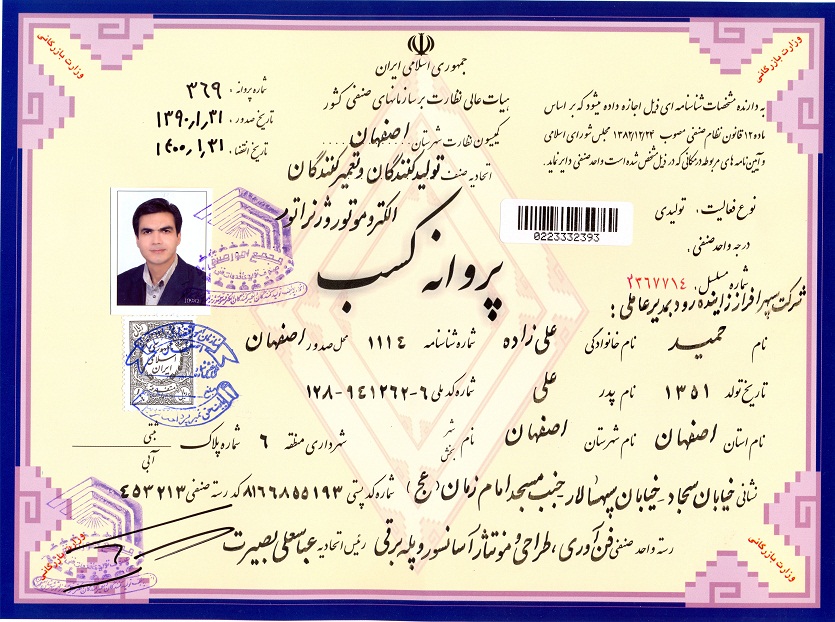 جمهوری اسلامی ایران
هیات عالی نظارت بر سازمانهای صنفی کشور
کمیسیون نظارت شهرستان اصفهان
اتحادیه صنف تولیدکنندگان و تعمیرکنندگان
الکتروموتور و ژنراتور
شماره پروانه : ۳۶۹
تاریخ صدور : ۱۳۹۰/۱/۳۱
تاریخ انقضاء : ۱۴۰۰/۱/۳۱
به دارنده مشخصات شناسنامه ای ذیل اجازه داده میشود که بر اساس
ماده ۱۲ قانون نظام صنفی مصوب ۱۳۸۲/۱۲/۲۴ مجلس شورای اسلامی
و آیین نامه های مربوطه در مکانی که در ذیل مشخص شده است واحد صنفی دایر نماید.
نوع فعالیت : تولیدی
درجه واحد صنفی :
شماره مسلسل : ۲۳۶۷۷۱۴
0223332393
پروانه کسب
شرکت سپهر افراز زاینده رود بمدیرعاملی :
نام حمید نام خانوادگی علی زاده شماره شناسنامه ۱۱۱۴ محل صدور اصفهان
تاریخ تولد ۱۳۵۱ نام پدر علی شماره کد ملی ۱۲۸-۹۴۱۲۶۲-۶
نام استان اصفهان نام شهرستان اصفهان نام شهر بخش شهرداری منطقه ۶ شماره پلاک ثبتی آبی
نشانی خیابان سجاد - خیابان سپهسالار - جنب مسجد امام زمان (عج) شماره کد پستی ۸۱۶۶۸۵۵۱۹۳ کد رسته صنفی ۴۵۳۲۱۳
رسته واحد صنفی فن آوری ، طراحی و مونتاژ آسانسور و پله برقی رئیس اتحادیه عباسعلی بصیرت
وزارت بازرگانی
وزارت بازرگانی
وزارت بازرگانی
وزارت بازرگانی